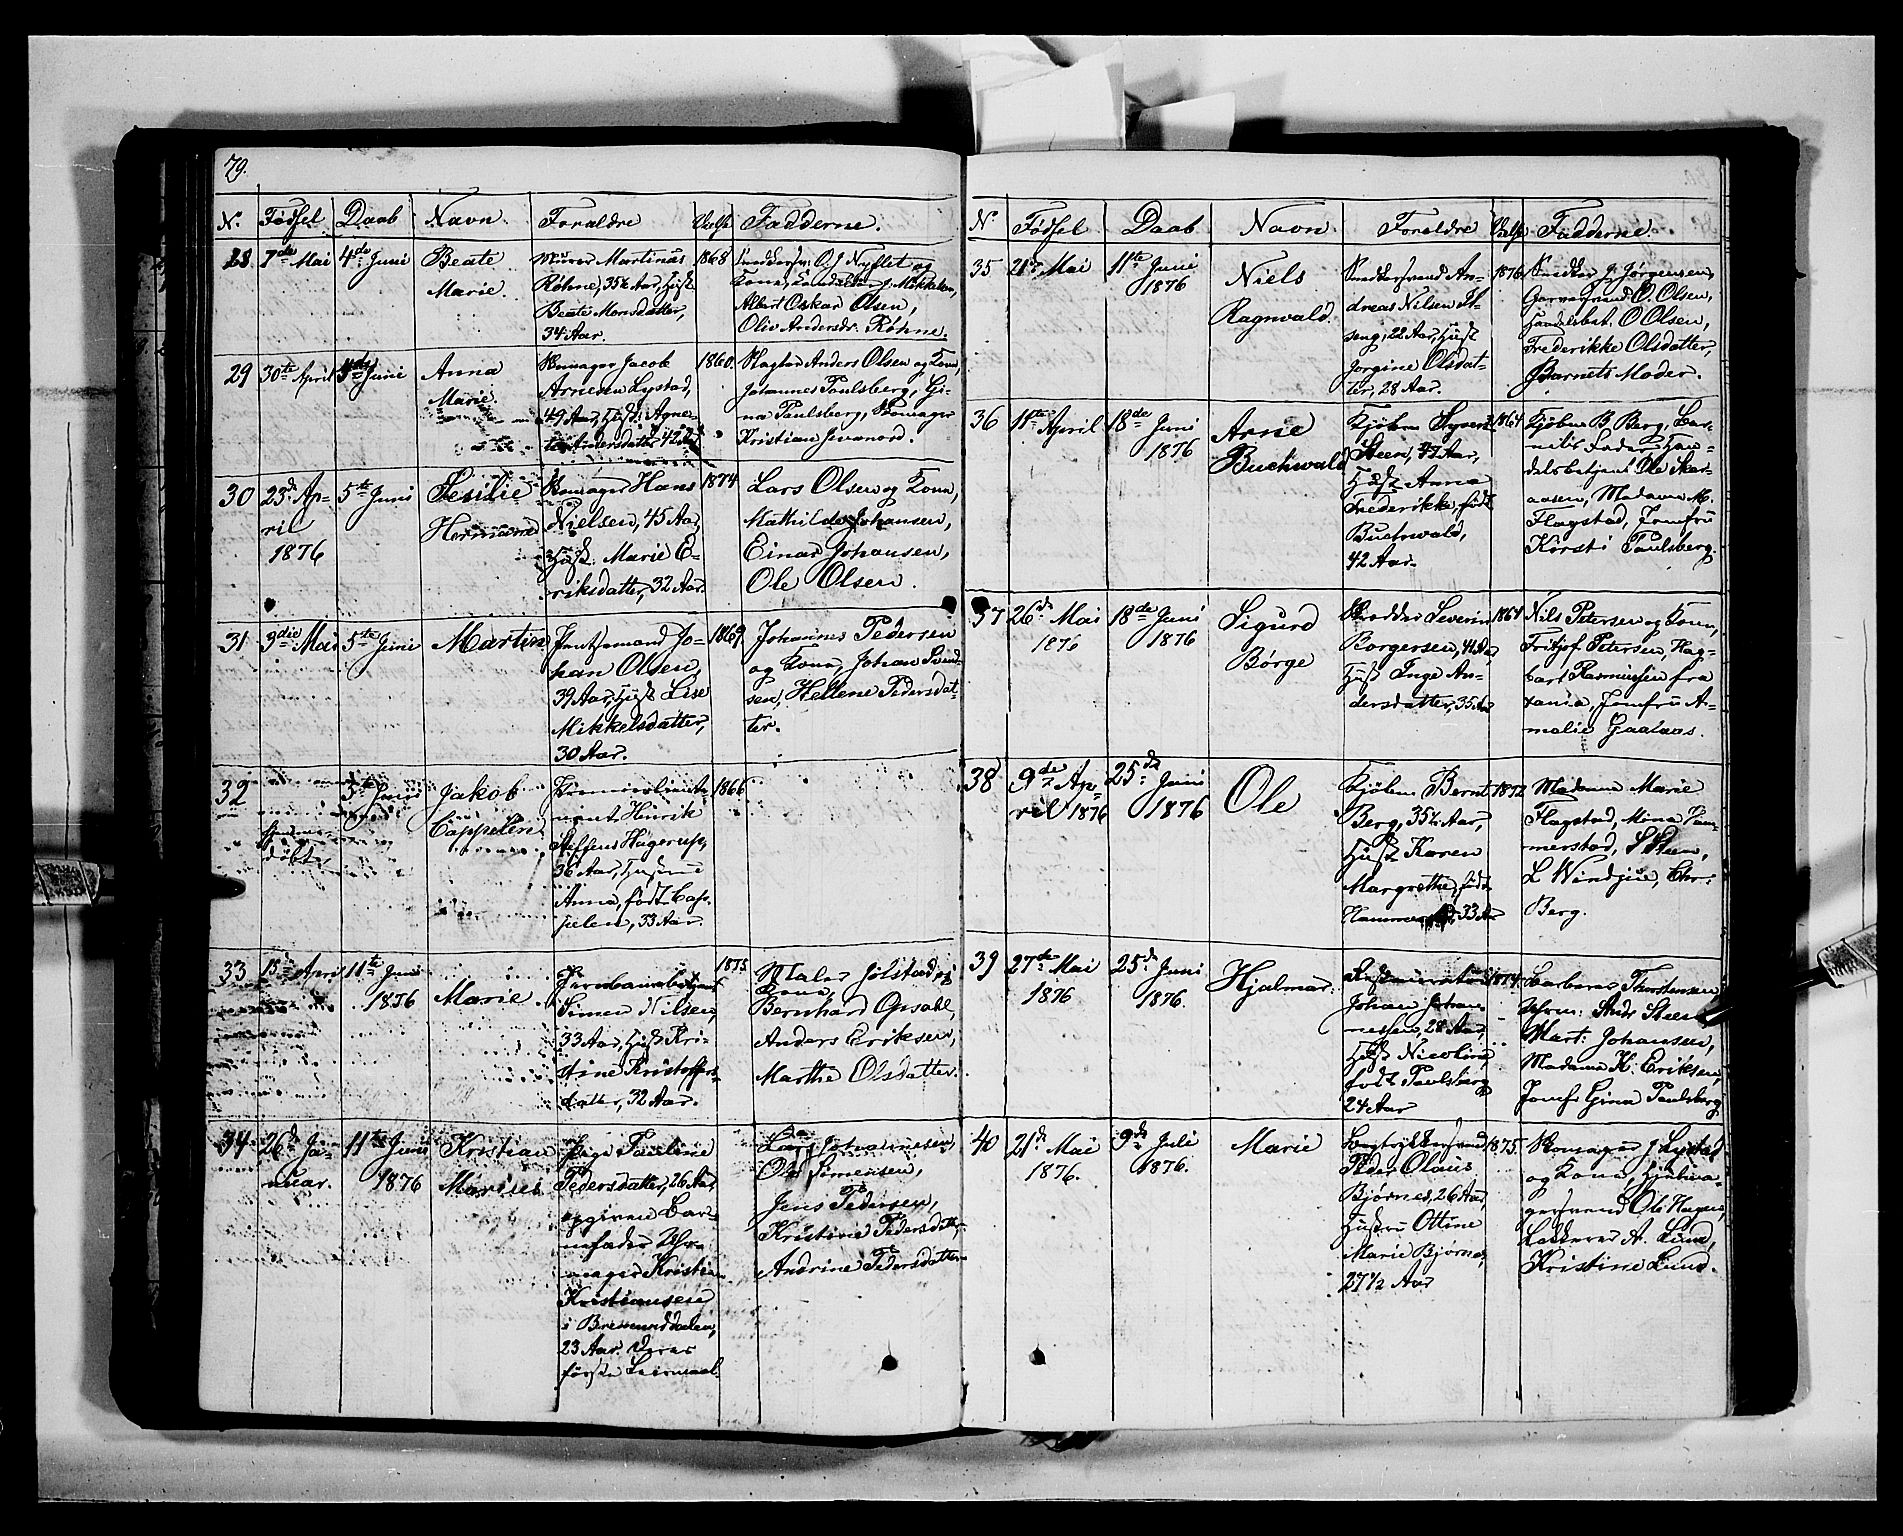 79.
N. Fødsel Daab Navn. Foraldre Vielse Fadderne.
28 7de Mai 4de Juni Beate Marie
Murer Martinus
Røhne, 35½ Aar, Hust.
Beate Monsdatter,
34 Aar.
1868
Kona,
Albert Oskar Olsen,
Oliv Andersdr. Røhne.
29 30te April 5de Juni Anna Marie
Skomager Jacob
Arnesen Lystad,
49 Aar, Hust. Agne-
1860.
Slagter Anders Olsen og Kona,
Johannes Paulsberg, Gi-
na Paulsberg, Skomager
Kristian
30 23de Ap-
ril
1876
5te Juni
Sesilie
Hermanne
Skomager Hans
Nielsen, 45 Aar,
Hust. Marie E-
riksdatter, 32 Aar.
1874
Lars Olsen og Kona,
Mathilde Johansen,
Einar Johansen,
Ole Olsen.
31 3die Mai 5te Juni Martin
Jo-
han Olsen,
39 Aar, Hust. Lise
Mikkelsdatter,
30 Aar.
1869
Johannes Pedersen
og Kona, Johan Svend-
sen, Hellene Pedersdat-
ter.
32
døbt
5te Juni
Jakob
Cappelen
Henrik
Steffens Hagerup,
36 Aar, Hustru
Anna, født Cap-
pelen, 33 Aar.
1866
33 15 April 11te Juni
1876
Marie
Jernbanebetjent
Simen Nilsen,
33 Aar, Hust. Kri-
stine Kristoffers-
datter, 32 Aar.
1875
Maler Jølstad og
Kona,
Bernhard Opsahl,
Anders Eriksen,
Marthe Olsdatter.
34 26de Ja-
nuar.
11te Juni
1876
Kristian
Marius
Pige Pauline
Pedersdatter, 26 Aar,
opgiven Bar-
nefader Uhr-
mager Kristian
Kristiansen
i Brumunddalen,
23 Aar. Deres
første Leiermaal.
Lars Johannesen,
Ole Simensen,
Jens Pedersen,
Kristine Pedersdatter,
Andrine Pedersdatter.
N Fødsel Daab Navn Foraldre Vielse Fadderne.
35 21de Mai 11te Juni
1876
Niels
Ragnvald.
Snedkersvend An-
dreas Nilsen
22 Aar, Hust.
Jorgine Olsdat-
ter, 28 Aar.
1876
Snedker J. Jørgensen,
Garversvend O. Olsen,
Handelsbet. O Olsen,
Frederikke Olsdatter,
Barnets Moder.
36 11te April 18de Juni
1876
Arne
Buchwald
Kjøbm. Syver
Steen, 47 Aar,
Hust. Anna
Frederikke, født
Buchwald,
42 Aar.
1864
Kjøbm B Berg, Bar-
nets Fader, Han-
delsbetjent Ole Skar-
aasen, Madame M.
Flagstad, Jomfru
Kirsti Paulsberg.
37 26de Mai
1876
18de Juni
1876
Sigurd
Børge
Skrædder Severin
Borgersen, 44 Aar,
Hust. Inge An-
dersdatter, 35 Aar
1864
Nils Petersen og Kona,
Fritjof Petersen, Hag-
bart Rasmussen fra
Jomfru A-
malie Gaalaas.
38 9de Ap-
ril 1876
25de Juni
1876
Ole
Kjøbm Bernt
Berg, 35½ Aar,
Hust Karen
Margrethe, født
33 Aar
1872
Madame Marie
Flagstad, Mina Ham-
merstad, S Steen,
L Windju, Chr:
Berg.
39 27de Mai
1876
25de Juni
1876.
Hjalmar.
Johan Johan-
nessen, 28 Aar,
Hust Nicoline,
født Paulsberg
24 Aar
1874
Barberer Thorstensen,
Uhrm: Andr Steen
Mart: Johansen,
Madame K. Eriksen,
Jomfr Gina Paulsberg
40 21de Mai
1876.
9de Juli
1876.
Marie
Bogtrykkersvend
Peder Olaus
Bjørnes, 26 Aar,
Hustru Ottine
Marie Bjørnes,
27½ Aar
1875.
Skomager J Lystad
og Kona, Hjulma-
gersvend Ole Hagen,
A. Lund,
Kristine Lund.